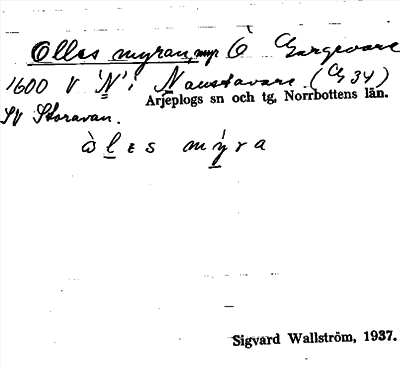 Olles myran, myr Ö Gargovare
1600 V "N" i Naustavare (G 34)
Arjeplogs sn och tg, Norrbottens län.
SV Storavan.
òl̲ɛs mỳ̲ra
Sigvard Wallström, 1937.